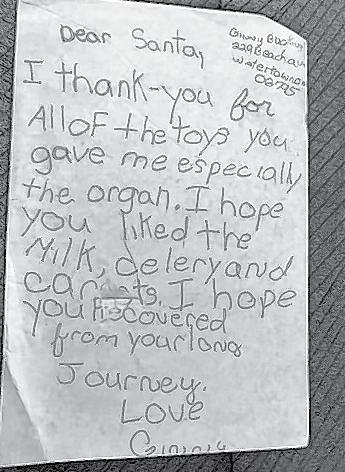 Dear Santa,
Ginny
229 Beach
Watertown
06795
I thank-you for
All of the toys you
gave me especially
the organ. I hope
you liked the
Milk, celery and
carrots. I hope
you Recovered
from your long
Journey.
Love
Ginny